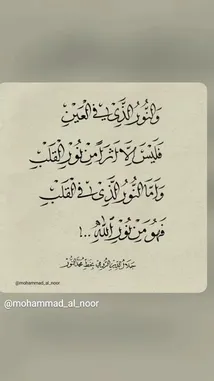 وَالنُّورُ الَّذِي فِي الْعَيْنِ
فَلَيْسَ إِلَّا أَثَرًا مِنْ نُورِ الْقَلْبِ
وَأَمَّا النُّورُ الَّذِي فِي الْقَلْبِ
فَهُوَ مِنْ نُورِ اللهِ ..!
جلال الدين الرومي بخط محمد النور
@mohammad_al_noor
@mohammad_al_noor